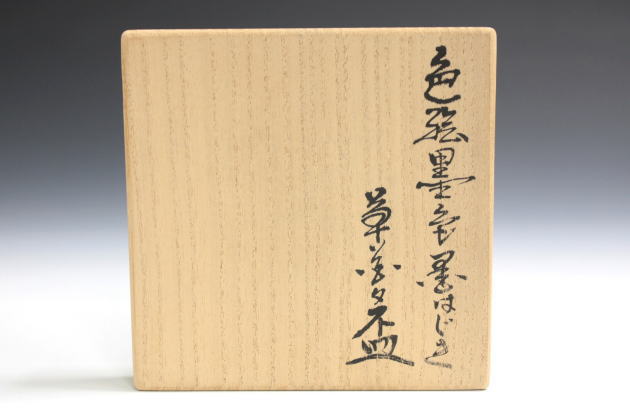 色絵墨色墨はじき
草花文盃